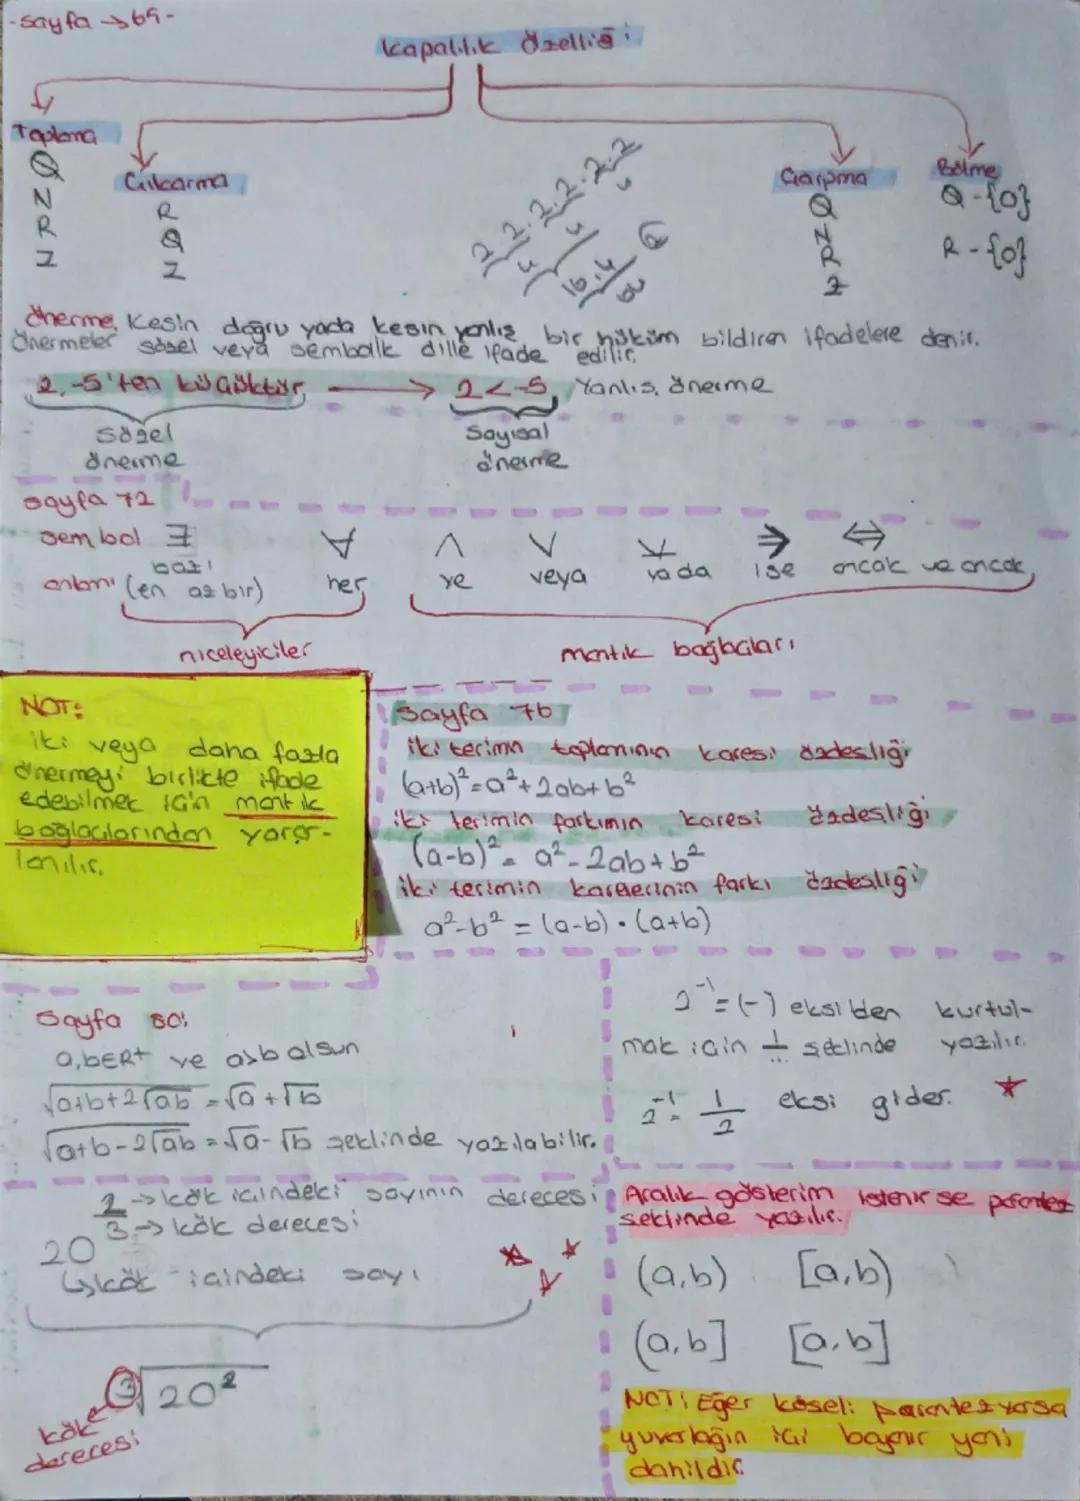 -sayfa → 69-
kapalılık özelliği:
Toplama
Q
N
R
Z
Çıkarma
R
Q
Z
2.2.2.2.2.2
4
4
16.4
Çarpma
Q
N
R
Z
Bölme
Q-{0}
R-{0}
önerme: Kesin doğru yada kesin yanlış bir hüküm bildiren ifadelere denir.
Önermeler sözel veya sembolik dille ifade edilir.
2, -5'ten küçüktür, → 2<-5, Yanlış. önerme
Sözel
önerme
Sayısal
önerme
sayfa 72
sembol ∃ ∀ ∧ ∨ ⊻ ⇒ ⇔
bazı
anlamı (en az bir) her ve veya ya da ise ancak ve ancak
niceleyiciler
mantık bağlaçları
NOT:
iki veya daha fazla
önermeyi birlikte ifade
edebilmek için mantık
bağlaçlarından yarar-
lanılır.
Sayfa 76
iki terimin toplamının karesi özdesliği
(a+b)²=a²+2ab+b²
iki terimin farkının karesi özdesliği
(a-b)²= a²-2ab+b²
iki terimin karelerinin farkı özdesliği
a²-b² = (a-b)·(a+b)
Sayfa 80:
a,b∈R+ ve a>b olsun
√a+b+2√ab = √a+√b
√a+b-2√ab = √a-√b şeklinde yazılabilir.
2⁻¹ = (-) eksi'den kurtul-
mak için 1/... şeklinde yazılır.
2⁻¹ = 1/2 eksi gider.
2 → kök içindeki sayının derecesi
3 → kök derecesi
20
↳ kök içindeki sayı
3√20²
kök
derecesi
Aralık gösterim istenirse parantez
şeklinde yazılır.
(a,b) [a,b)
(a,b] [a,b]
NOT: Eğer köşeli parantez varsa
yuvarlağın içi boyanır yani
dahildir.